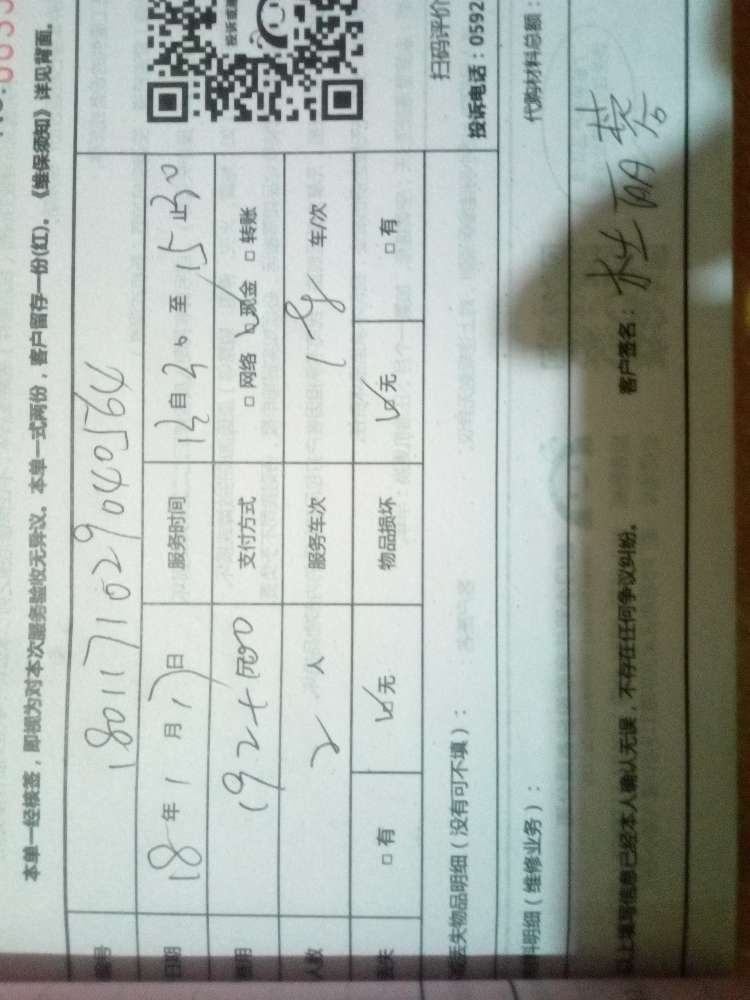 本单一经核签，即视为对本次服务验收无异议。本单一式两份，客户留存一份(红)。《维保须知》详见背面。
编号 1801171029040564
日期 18年1月17日 服务时间 13自30至15止30
费用 元 支付方式 □网络 ☑现金 □转账
人数 2人 服务车次 1 车/次
丢失 □有 ☑无 物品损坏 ☑无 □有
丢失物品明细（没有可不填）：
料明细（维修业务）： 代购材料总额：
以上填写信息已经本人确认无误，不存在任何争议纠纷。 客户签名：杜丽
投诉或
扫码评价
投诉电话：0592